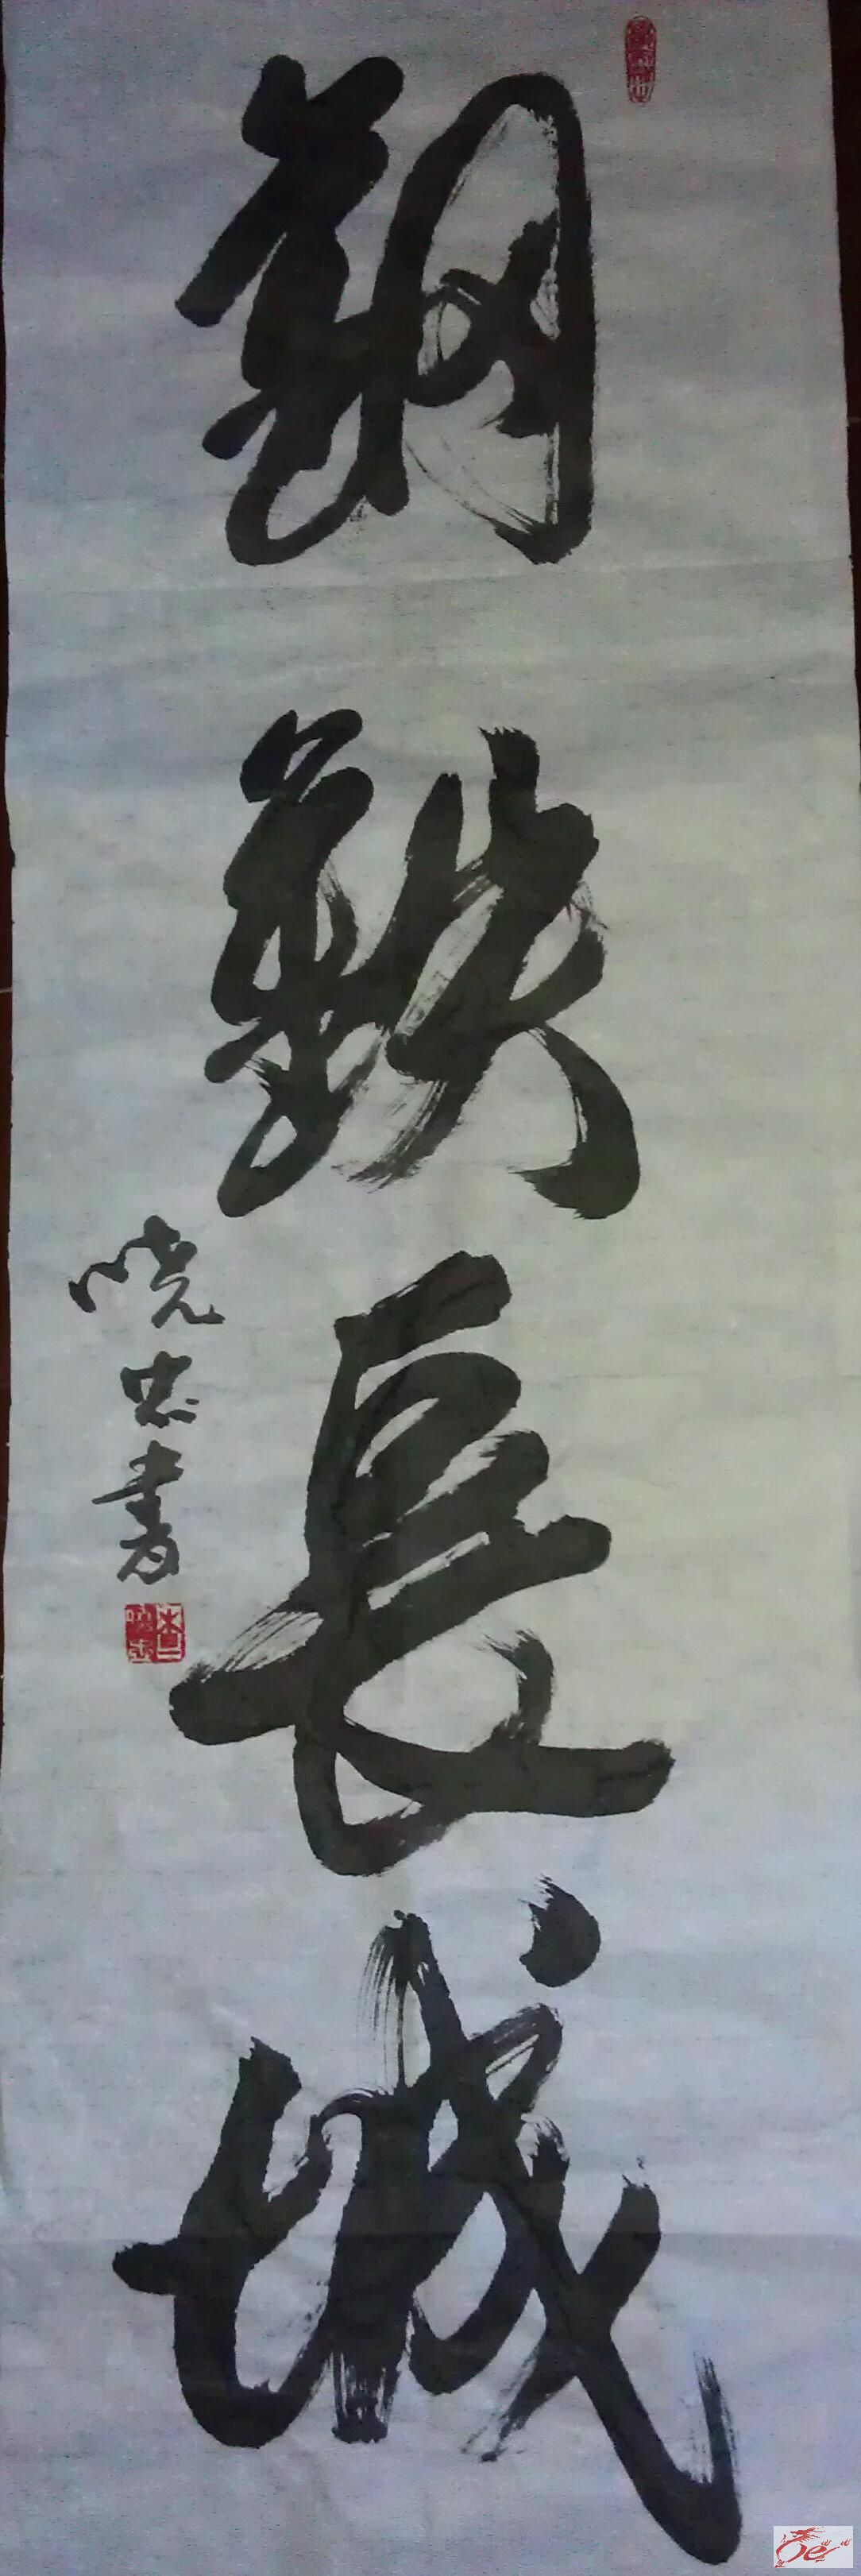 鋼鉄長城
曉忠書